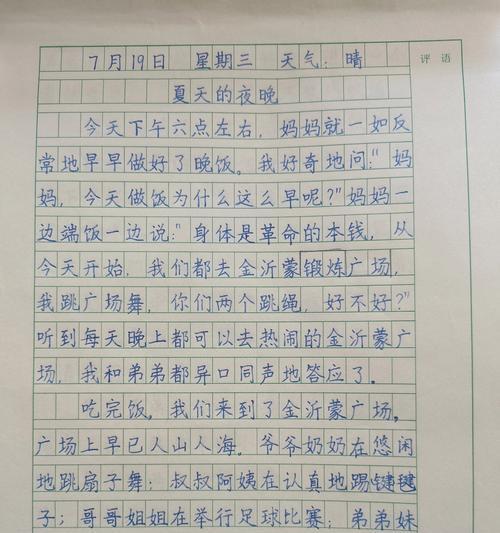 评语
7月19日 星期三 天气:晴
夏天的夜晚
今天下午六点左右,妈妈就一如反
常地早早做好了晚饭。我好奇地问:"妈
妈,今天做饭为什么这么早呢?"妈妈一
边端饭一边说:"身体是革命的本钱,从
今天开始,我们都去金沂蒙锻炼广场,
我跳广场舞,你们两个跳绳,好不好?"
听到每天晚上都可以去热闹的金沂蒙广
场,我和弟弟都异口同声地答应了。
吃完饭,我们来到了金沂蒙广场。
广场上早已人山人海。爷爷奶奶在悠闲
地跳扇子舞;叔叔阿姨在认真地踢毽毽
子;哥哥姐姐在举行足球比赛;弟弟妹